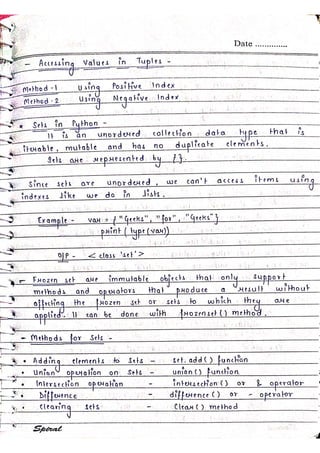 Date ..............
- Accessing Values in Tuples -
Method-1 Using Positive Index
Method-2 Using Negative Index
* Sets in Python -
It is an unordered collection data type that is
iterable, mutable and has no duplicate elements.
Sets are represented by { }.
Since sets are unordered, we can't access items using
indexes like we do in lists.
Example - var = {"Geeks", "for", "Geeks"}
print (type(var))
O/P - < class 'set'>
- Frozen set are immutable objects that only support
methods and operators that produce a result without
affecting the frozen set or sets to which they are
applied. It can be done with frozenset() method.
- Methods for Sets -
• Adding elements to sets - set.add() function
• Union operation on sets - union() function
• Intersection operation - intersection() or & operator
• Difference - difference() or - operator
• Clearing sets - Clear() method
Spiral